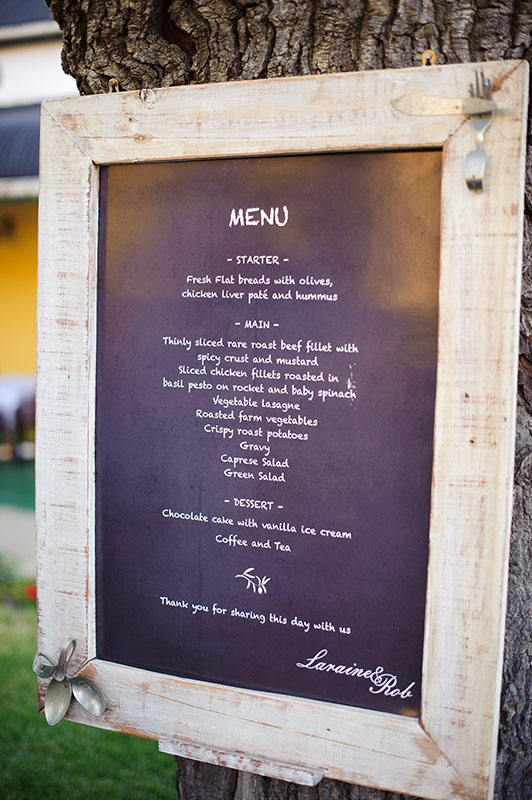 MENU
- STARTER -
Fresh Flat breads with olives,
chicken liver paté and hummus
- MAIN -
Thinly sliced rare roast beef fillet with
spicy crust and mustard
Sliced chicken fillets roasted in
basil pesto on rocket and baby spinach
Vegetable lasagne
Roasted farm vegetables
Crispy roast potatoes
Gravy
Caprese Salad
Green Salad
- DESSERT -
Chocolate cake with vanilla ice cream
Coffee and Tea
Thank you for sharing this day with us
Laraine&
Rob